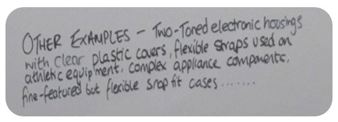 OTHER EXAMPLES - Two-Toned electronic housings
with clear plastic covers, flexible straps used on
athletic equipment, complex appliance components,
fine-featured but flexible snap fit cases .......